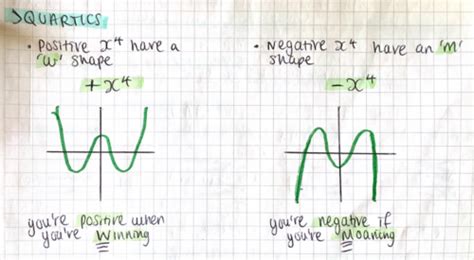 QUARTICS
• Positive x⁴ have a
'W' shape
+x⁴
you're positive when
you're Winning
• Negative x⁴ have an 'M'
shape
-x⁴
you're negative if
you're Moaning